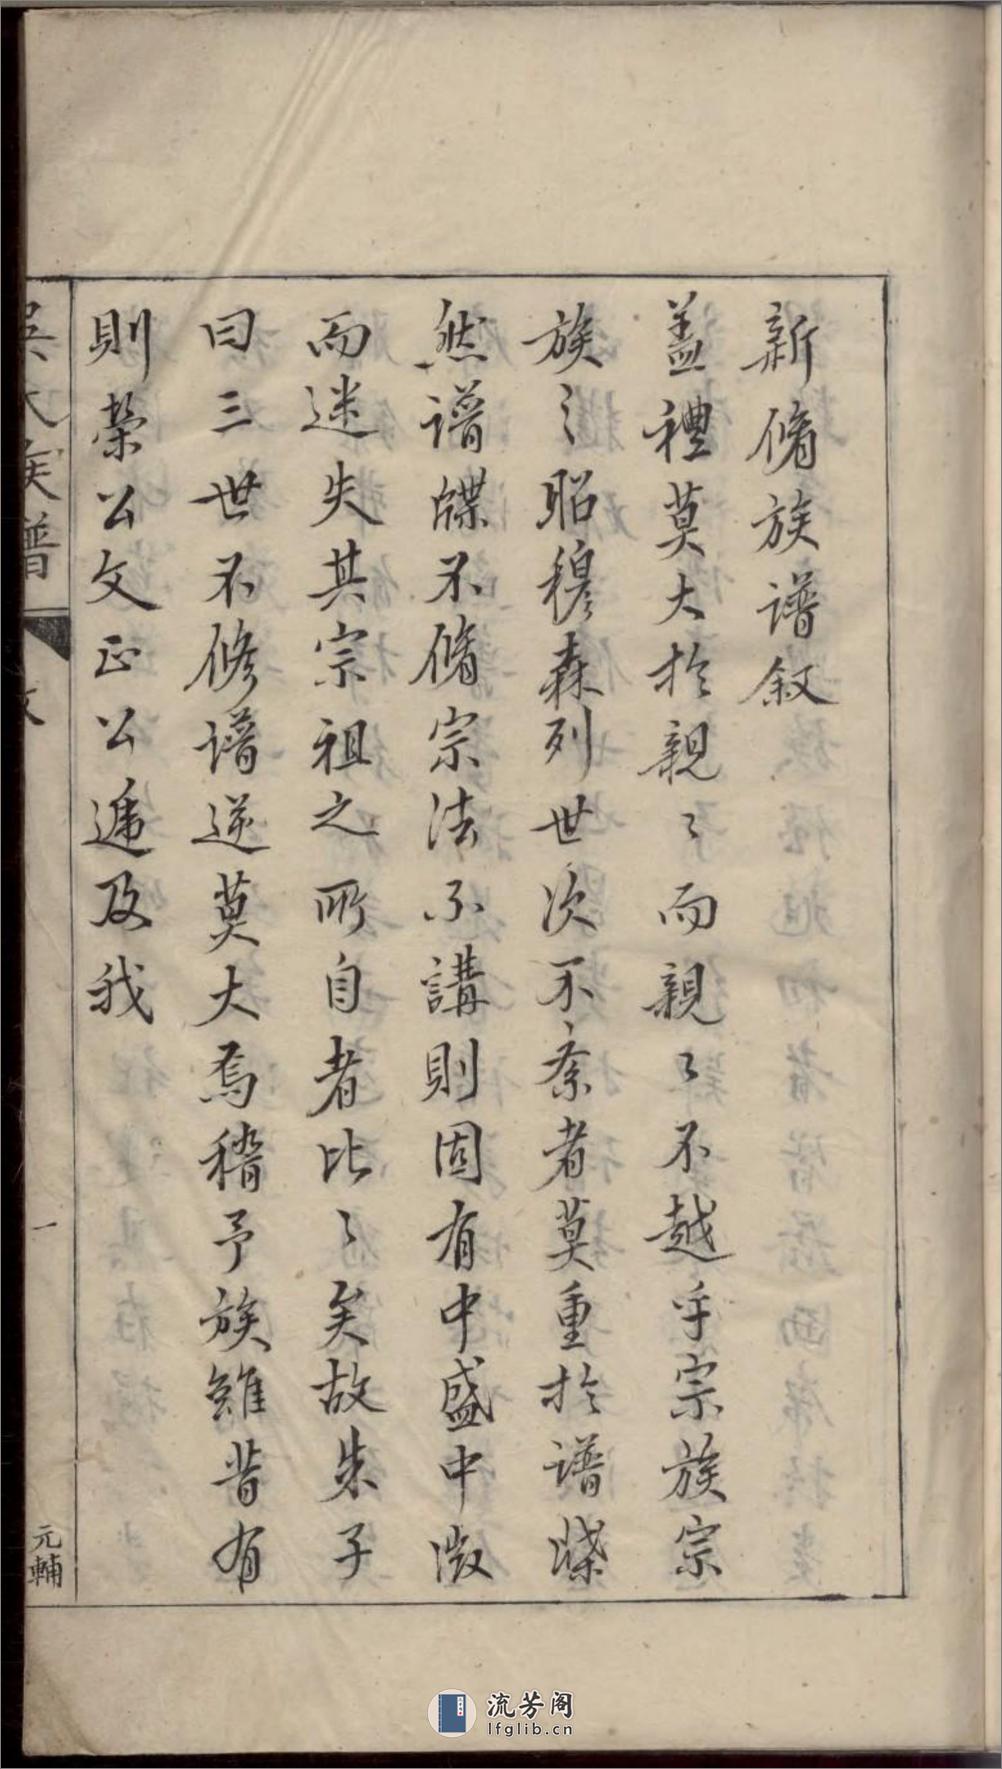 新脩族譜叙
盖禮莫大於親〻而親〻不越乎宗族宗
族之昭穆森列世次不紊者莫重於譜牒
然譜牒不脩宗法不講則固有中盛中微
而迷失其宗祖之所自者比〻矣故朱子
曰三世不修譜逆莫大焉稽予族雖昔有
則榮公文正公遞及我
吳氏族譜
一
元輔
流芳阁
lfglib.cn